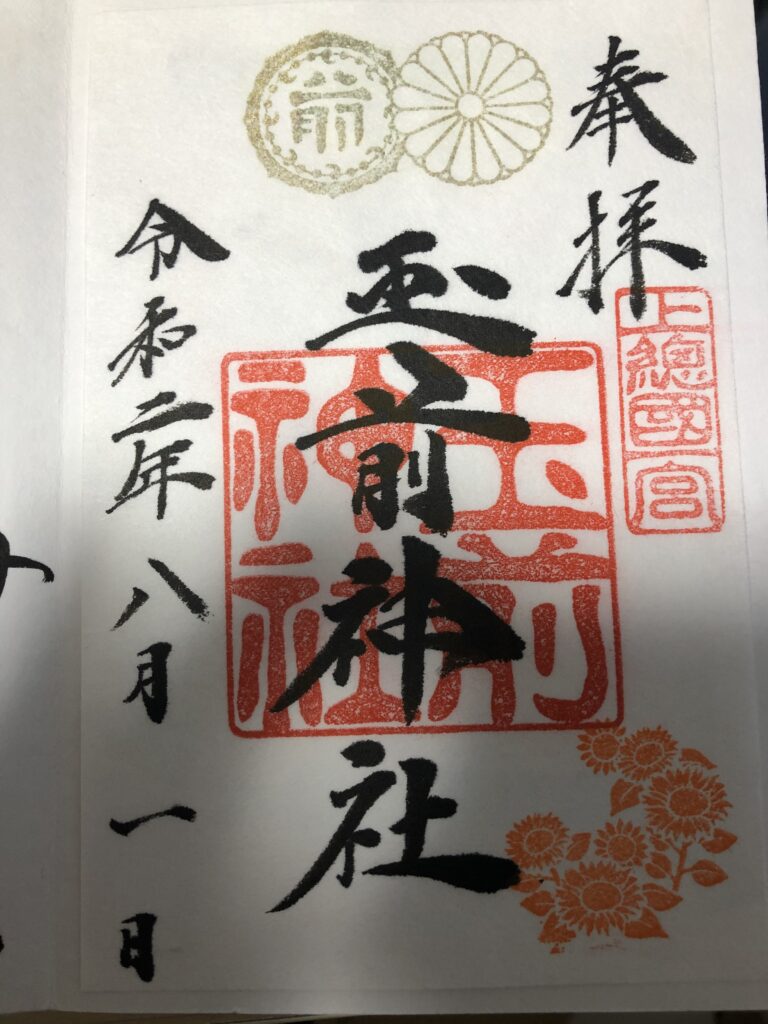 奉拝
上總國一宮
玉前神社
玉前神社
令和二年八月一日